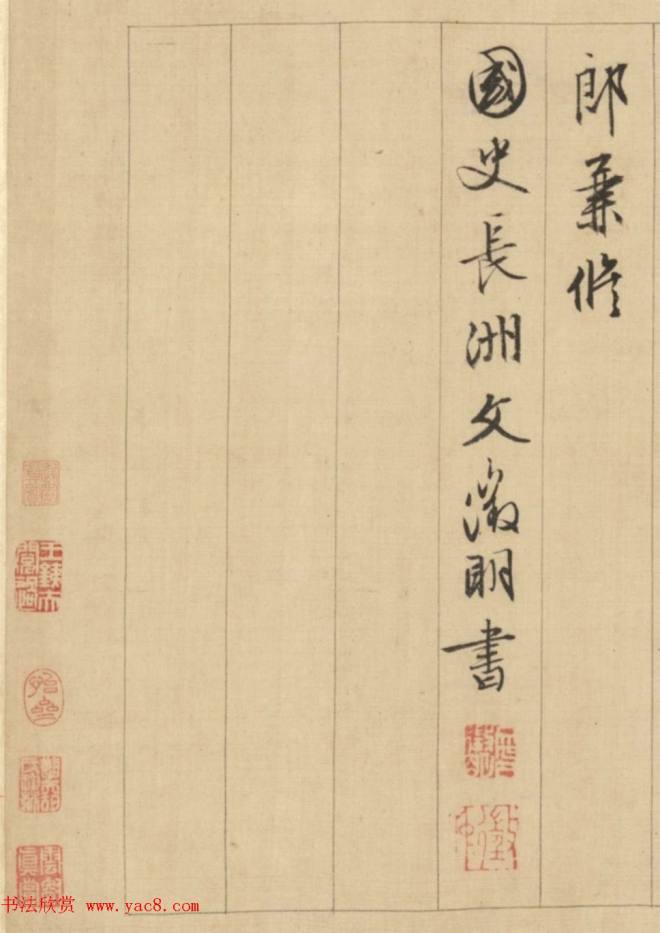 郎兼修
國史長洲文徵明書
书法欣赏 www.yac8.com